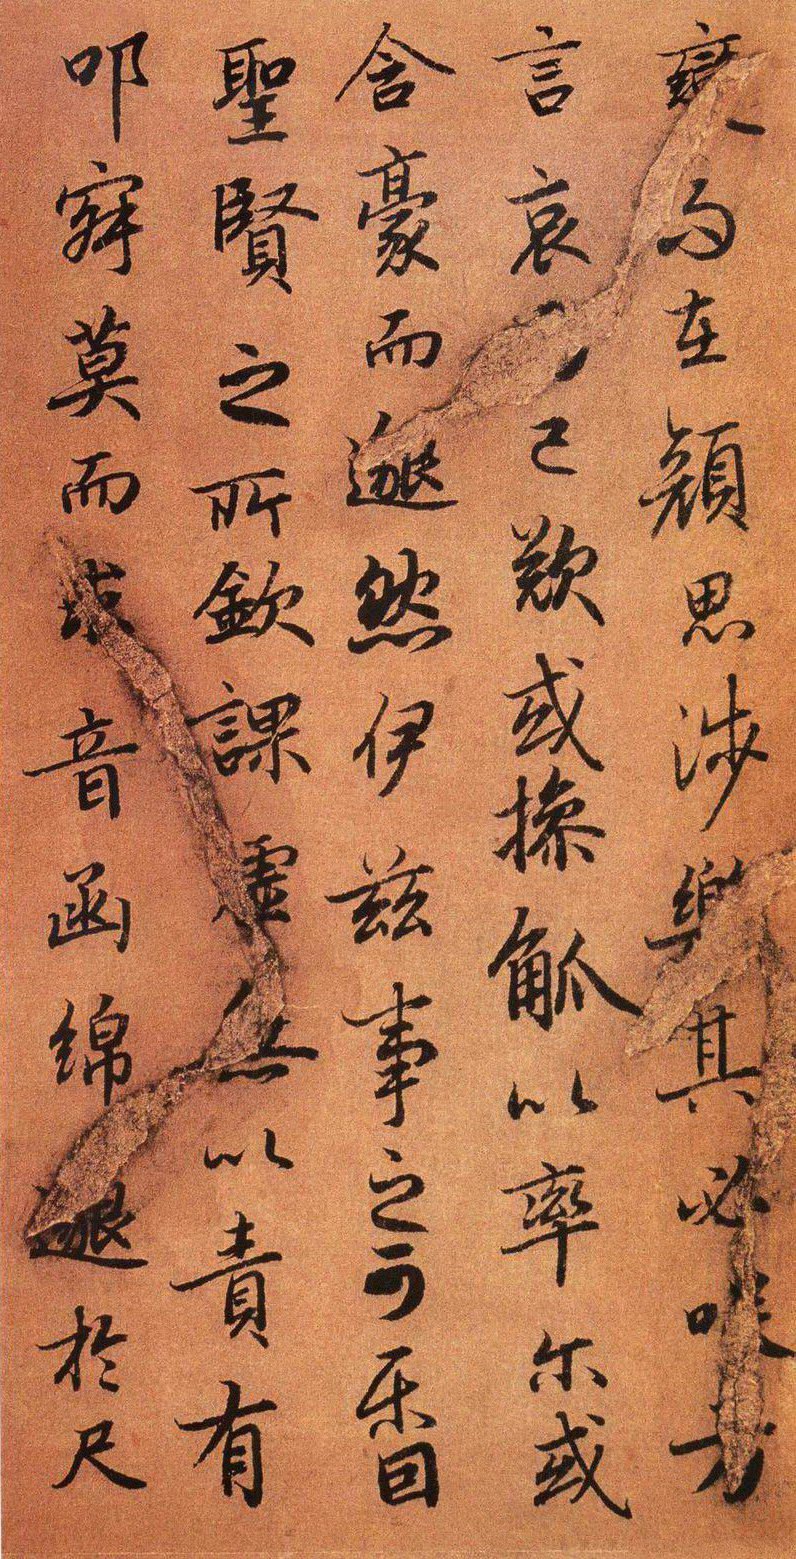 變而在顏思涉樂其必咲方
言哀已歎或操觚以率尔或
含豪而邈然伊茲事之可樂固
聖賢之所欽課虛無以責有
叩寂莫而求音函綿邈於尺